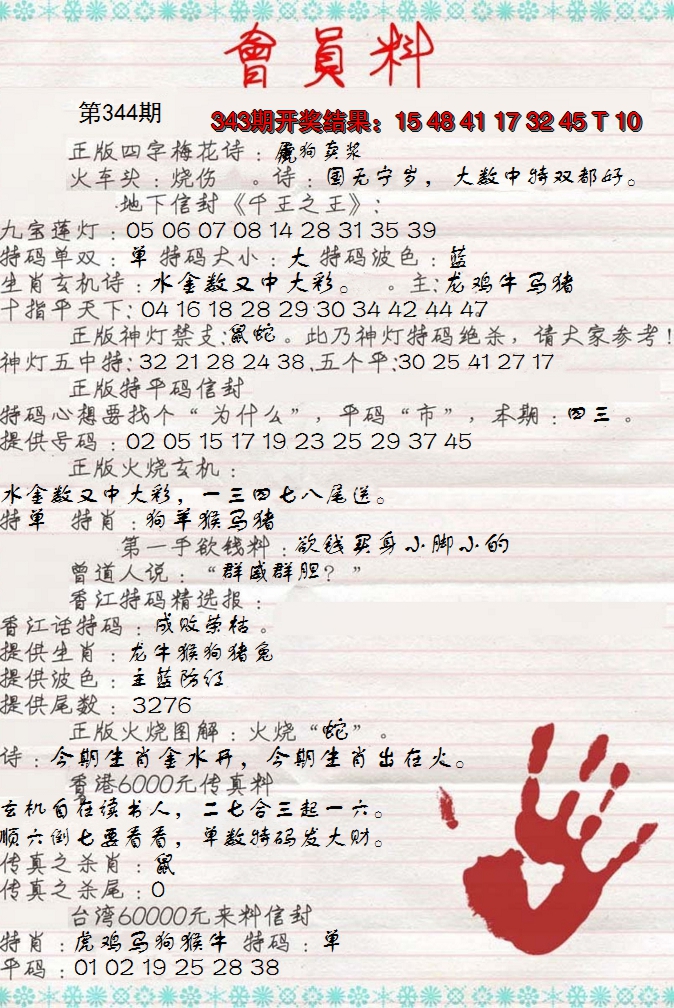 會員料
第344期
343期开奖结果：15 48 41 17 32 45 T 10
正版四字梅花诗：虎狗卖浆
火车头：烧伤 。诗：国无宁岁，大数中特双都好。
地下信封《千王之王》:
九宝莲灯：05 06 07 08 14 28 31 35 39
特码单双：单 特码大小：大 特码波色：蓝
生肖玄机诗：水金数又中大彩。 。主:龙鸡牛马猪
十指平天下: 04 16 18 28 29 30 34 42 44 47
正版神灯禁支:鼠蛇。此乃神灯特码绝杀，请大家参考!
神灯五中特: 32 21 28 24 38.五个平:30 25 41 27 17
正版特平码信封
特码心想要找个“为什么”，平码“市”，本期：四三。
提供号码：02 05 15 17 19 23 25 29 37 45
正版火烧玄机：
水金数又中大彩，一三四七八尾送。
特单 特肖：狗羊猴马猪
第一手欲钱料：欲钱买身小脚小的
曾道人说：“群威群胆？”
香江特码精选报：
香江话特码：成败荣枯。
提供生肖：龙牛猴狗猪兔
提供波色：主蓝防红
提供尾数：3276
正版火烧图解：火烧“蛇”。
诗：今期生肖金水开，今期生肖出在火。
香港6000元传真料
玄机自在读书人，二七合三起一六。
顺六倒七要看看，单数特码发大财。
传真之杀肖：鼠
传真之杀尾：0
台湾60000元来料信封
特肖：虎鸡马狗猴牛 特码：单
平码：01 02 19 25 28 38